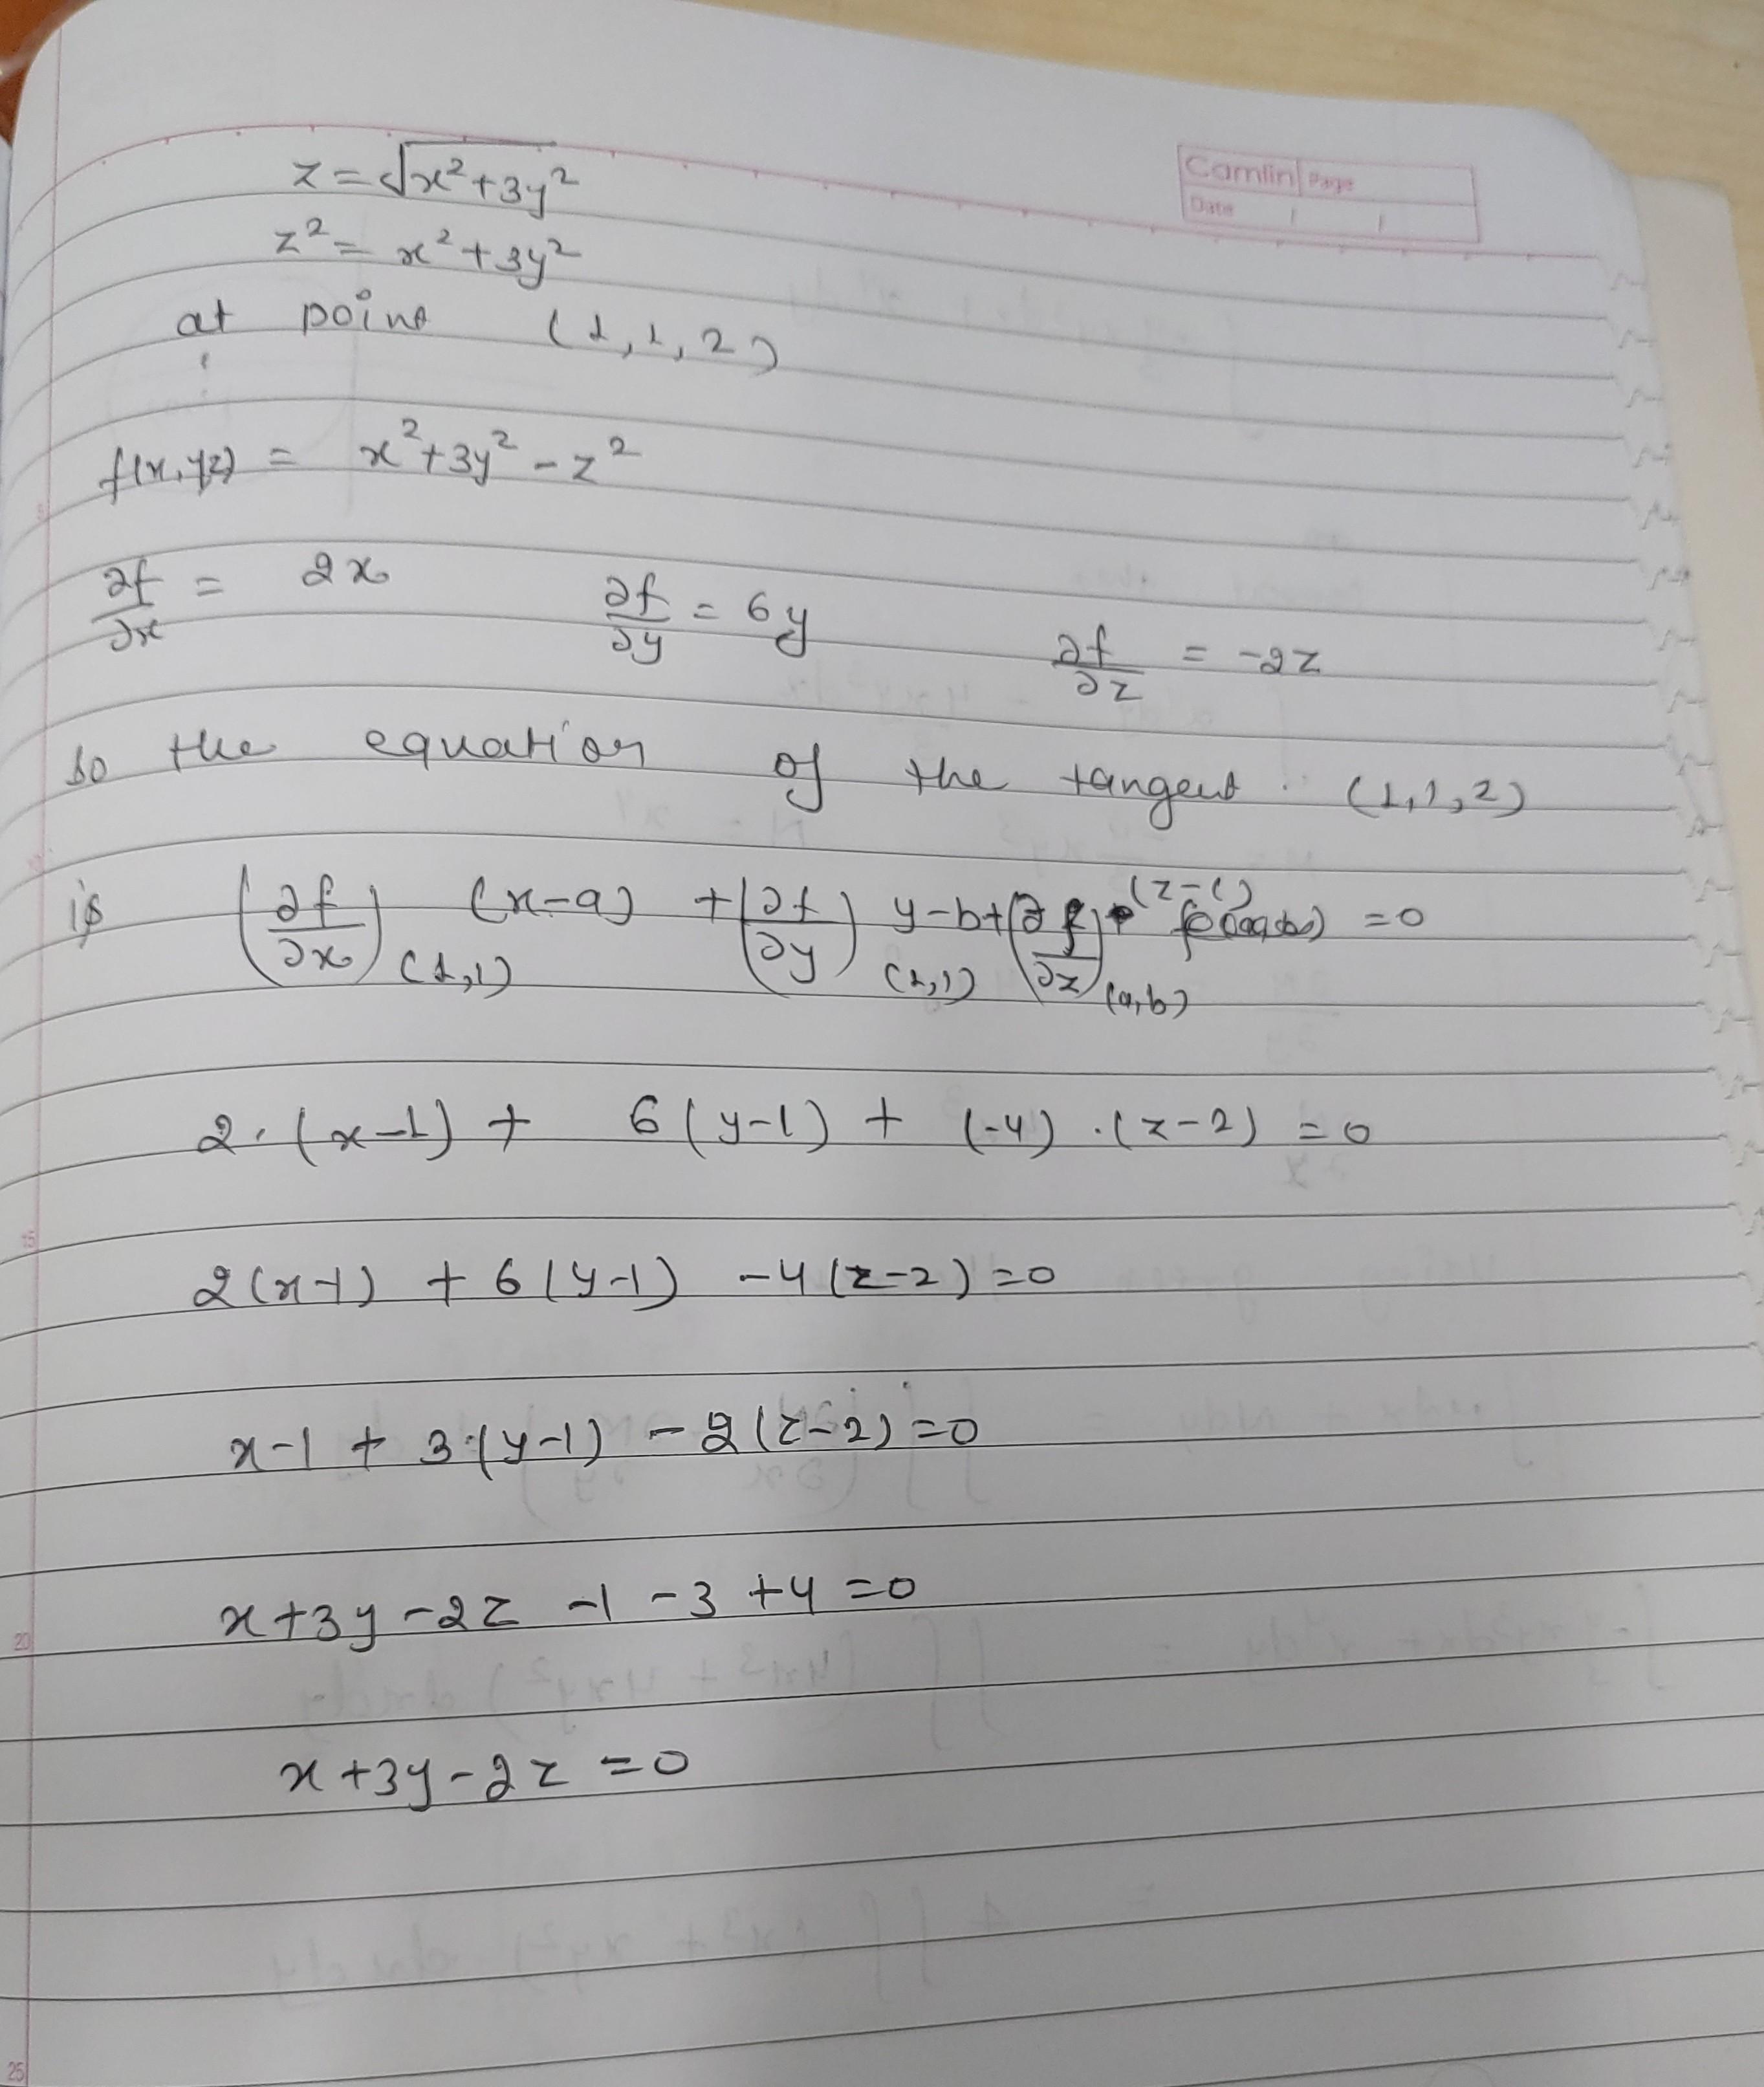 Camlin Page
Date / /
z = √x²+3y²
z² = x²+3y²
at point (1,1,2)
f(x,yz) = x²+3y²-z²
∂f/∂x = 2x ∂f/∂y = 6y ∂f/∂z = -2z
so the equation of the tangent (1,1,2)
is (∂f/∂x)(1,1) (x-a) + (∂f/∂y)(1,1) y-b + (∂f/∂z)(a,b) (z-c) = 0
2·(x-1) + 6(y-1) + (-4)·(z-2) = 0
2(x-1) + 6(y-1) -4(z-2)=0
x-1 + 3·(y-1) - 2(z-2)=0
x+3y-2z -1-3+4=0
x+3y-2z=0
5
10
15
20
25